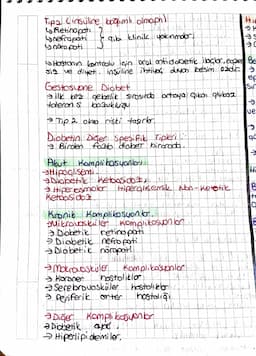 Tip 2 (insüline bağımlı olmayan)
→ Retinopati
→ nefropati } gibi klinik yakınmalar.
→ nöropati
→ Hastanın kontrolü için oral antidiabetik ilaçlar, egzer
siz ve diyet. insüline ihtiyaç duyan kesim azdır.
Gestasyone Diabet
→ ilk kez gebelik sırasında ortaya çıkan glikoz
tolerans bozukluğu
→ Tip 2 olma riski taşırlar.
Diabetin Diğer Spesifik Tipleri
→ Birden fazla diabet
Akut Komplikasyonları
→ Hipoglisemi
→ Diabetik Ketoasidoz
→ Hiperosmolar Hiperglisemik Non-Ketotik
Ketoasidoz
Kronik Komplikasyonlar
→ Mikrovasküler Komplikasyonlar
→ Diabetik retinopati
→ Diabetik nefropati
→ Diabetik nöropati
→ Makrovasküler Komplikasyonlar
→ Koroner hastalıklar
→ Serebrovasküler hastalıklar
→ Periferik arter hastalığı
→ Diğer Komplikasyonlar
→ Diabetik ayak
→ Hiperlipidemiler.